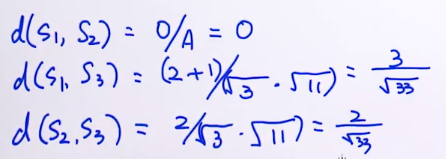 d(S₁, S₂) = 0/A = 0
d(S₁, S₃) = (2+1)/(√3 · √11) = 3/√33
d(S₂, S₃) = 2/√3 · √11) = 2/√33